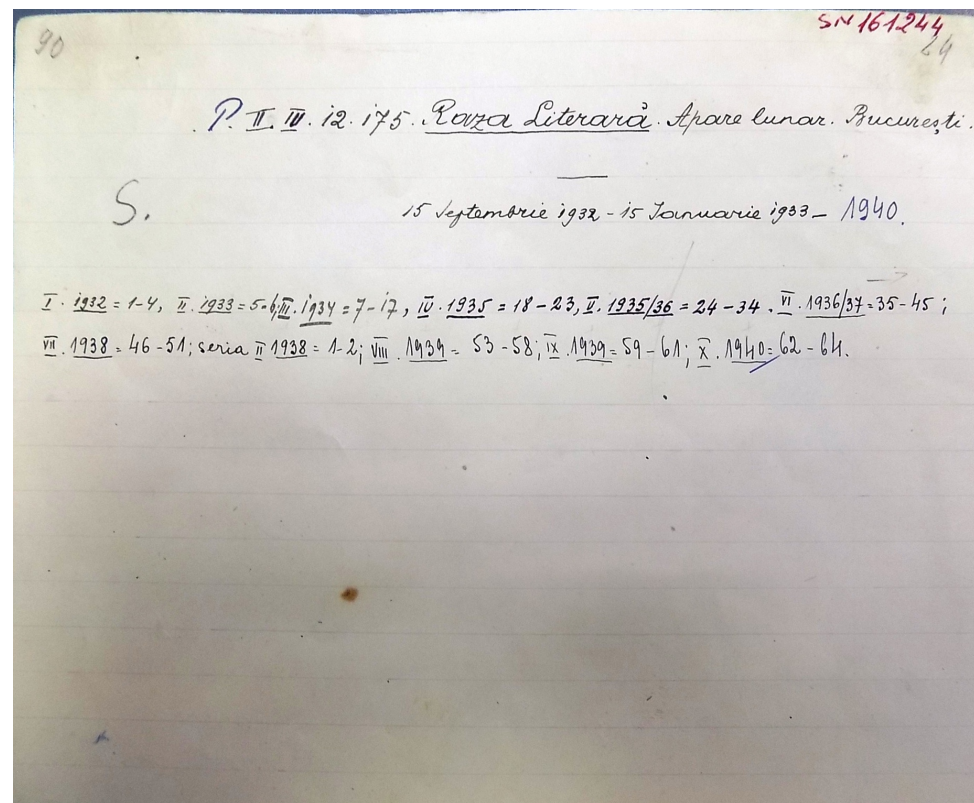 SN 161244
90
24
P. II. IV. 12. 175. Raza Literară. Apare lunar. București.
S.
15 Septembrie 1932 - 15 Ianuarie 1933 - 1940.
I. 1932 = 1-4, II. 1933 = 5-6, III. 1934 = 7-17, IV. 1935 = 18-23, V. 1935/36 = 24-34. VI. 1936/37 = 35-45;
VII. 1938 = 46-51; seria II 1938 = 1-2; VIII. 1939 = 53-58; IX. 1939 = 59-61; X. 1940 = 62-64.